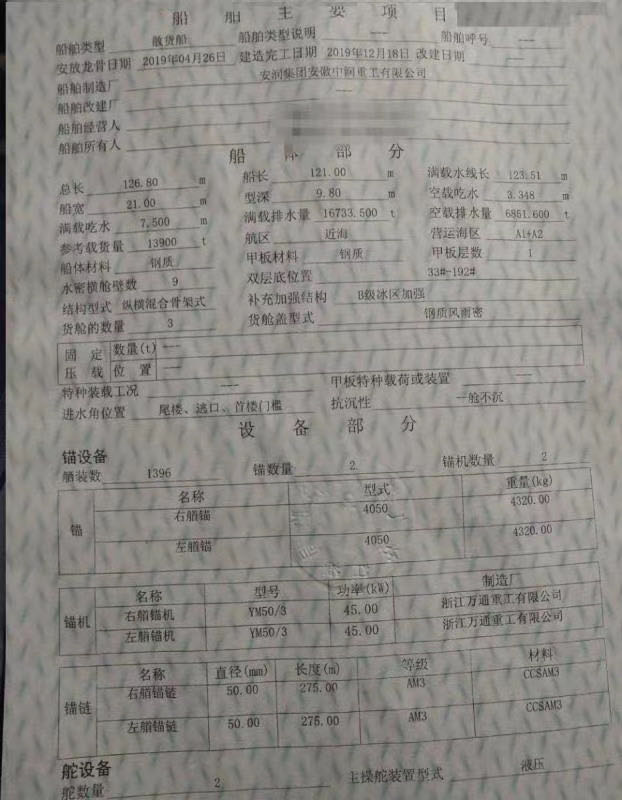 船舶主要项目
船舶类型 散货船 船舶类型说明 —— 船舶呼号 ——
安放龙骨日期 2019年04月26日 建造完工日期 2019年12月18日 改建日期 ——
船舶制造厂 安润集团安徽中润重工有限公司
船舶改建厂 ——
船舶经营人
船舶所有人
船体部分
总长 126.80 m 船长 121.00 m 满载水线长 123.51 m
船宽 21.00 m 型深 9.80 m 空载吃水 3.348 m
满载吃水 7.500 m 满载排水量 16733.500 t 空载排水量 6851.600 t
参考载货量 13900 t 航区 近海 营运海区 A1+A2
船体材料 钢质 甲板材料 钢质 甲板层数 1
水密横舱壁数 9 双层底位置 33#-192#
结构型式 纵横混合骨架式 补充加强结构 B级冰区加强
货舱的数量 3 货舱盖型式 钢质风雨密
固定 数量(t) ——
压载 位置 ——
特种装载工况 —— 甲板特种载荷或装置 ——
进水角位置 尾楼、逃口、首楼门槛 抗沉性 一舱不沉
设备部分
锚设备
舾装数 1396 锚数量 2 锚机数量 2
锚 名称 型式 重量(kg)
右艏锚 4050 4320.00
左艏锚 4050 4320.00
锚机 名称 型号 功率(kW) 制造厂
右艏锚机 YM50/3 45.00 浙江万通重工有限公司
左艏锚机 YM50/3 45.00 浙江万通重工有限公司
锚链 名称 直径(mm) 长度(m) 等级 材料
右艏锚链 50.00 275.00 AM3 CCSAM3
左艏锚链 50.00 275.00 AM3 CCSAM3
舵设备
舵数量 2 主操舵装置型式 液压